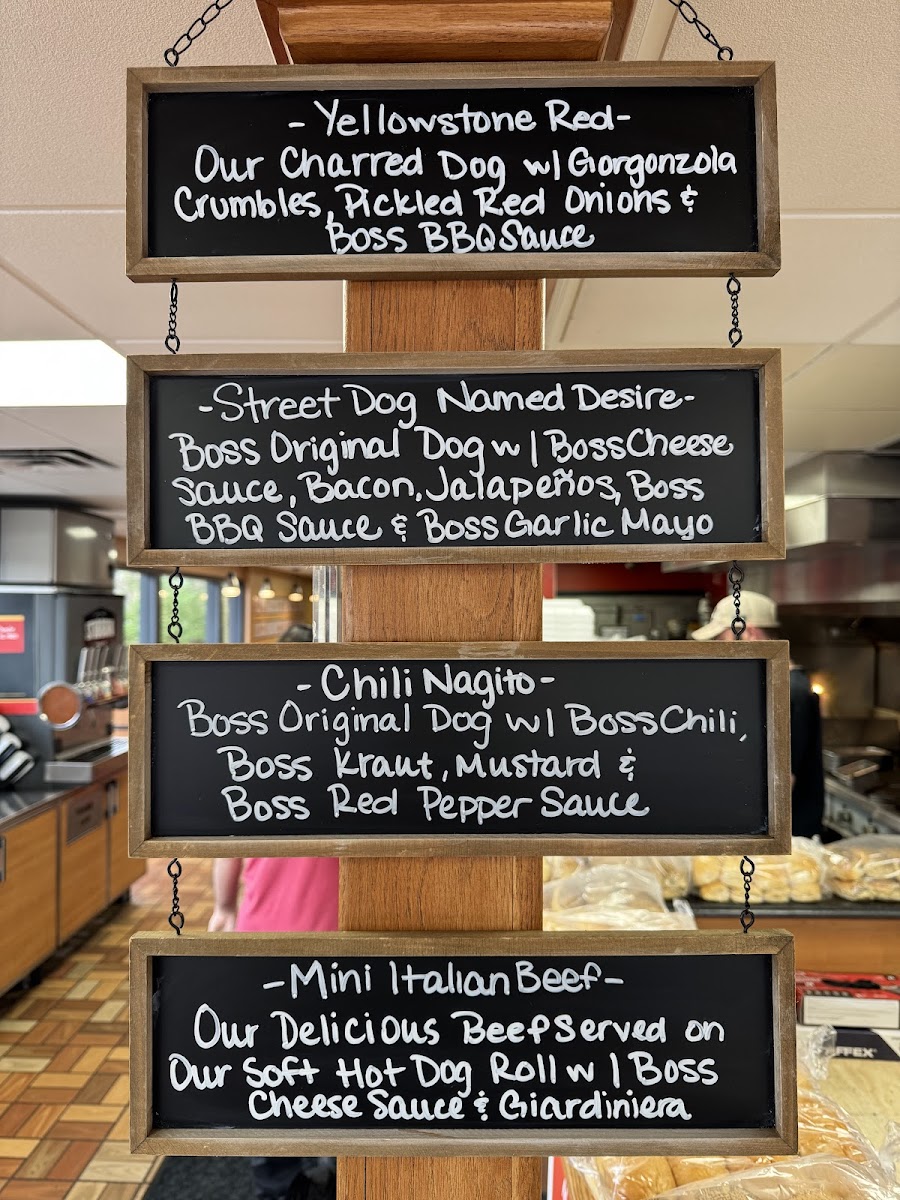 - Yellowstone Red-
Our Charred Dog w/ Gorgonzola
Crumbles, Pickled Red Onions &
Boss BBQ Sauce
-Street Dog Named Desire-
Boss Original Dog w/ Boss Cheese
Sauce, Bacon, Jalapeños, Boss
BBQ Sauce & Boss Garlic Mayo
-Chili Nagito-
Boss Original Dog w/ Boss Chili,
Boss Kraut, Mustard &
Boss Red Pepper Sauce
-Mini Italian Beef-
Our Delicious Beef Served on
Our Soft Hot Dog Roll w/ Boss
Cheese Sauce & Giardiniera